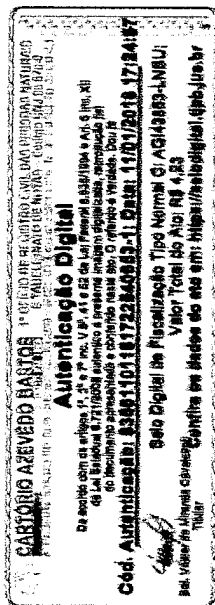 CARTÓRIO AZEVEDO BASTOS
1º OFÍCIO DE REGISTRO CIVIL DAS PESSOAS NATURAIS
E TABELIONATO DE NOTAS
Autenticação Digital
De acordo com os artigos 1º, 3º e 7º inc. V 8º, 41 e 52 da Lei Federal 8.935/1994 e Art. 6 Inc. XII
da Lei Estadual 8.721/2008 autentico a presente imagem digitalizada, reprodução fiel
do documento apresentado e conferido neste ato. O referido é verdade. Dou fé
Cód. Autenticação: Data: 11/01/2018 17:24:57
Selo Digital de Fiscalização Tipo Normal C:
Valor Total do Ato: R$ 4,23
Confira os dados do ato em: https://selodigital.tjpb.jus.br
Bel. Válber de Miranda Cavalcanti
Titular